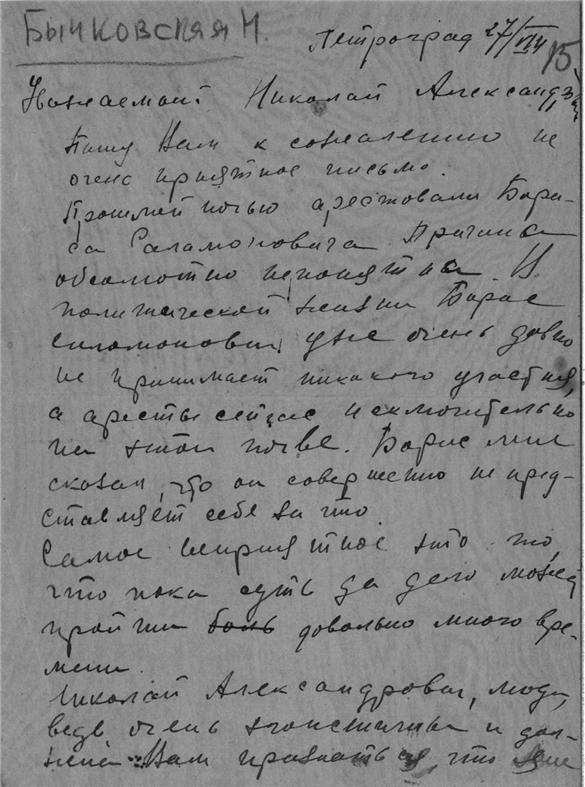 Бычковская Н.
Петроград 27/VIII
15
Уважаемый Николай Александр
Пишу Вам к сожалению не
очень приятное письмо.
Прошлой ночью арестовали Бори-
са Саламоновича Причина
абсолютно непонятна. В
политической жизни Борис
Саламонович уже очень давно
не принимает никакого участия,
а аресты сейчас исключительно
на этой почве. Борис мне
сказал, что он совершенно не пред-
ставляет себе за что.
Самое неприятное это то,
что пока суть да дело может
пройти боль довольно много вре-
мени.
Николай Александрович, люди
ведь очень эгоистичны и дол-
жна Вам признаться, что